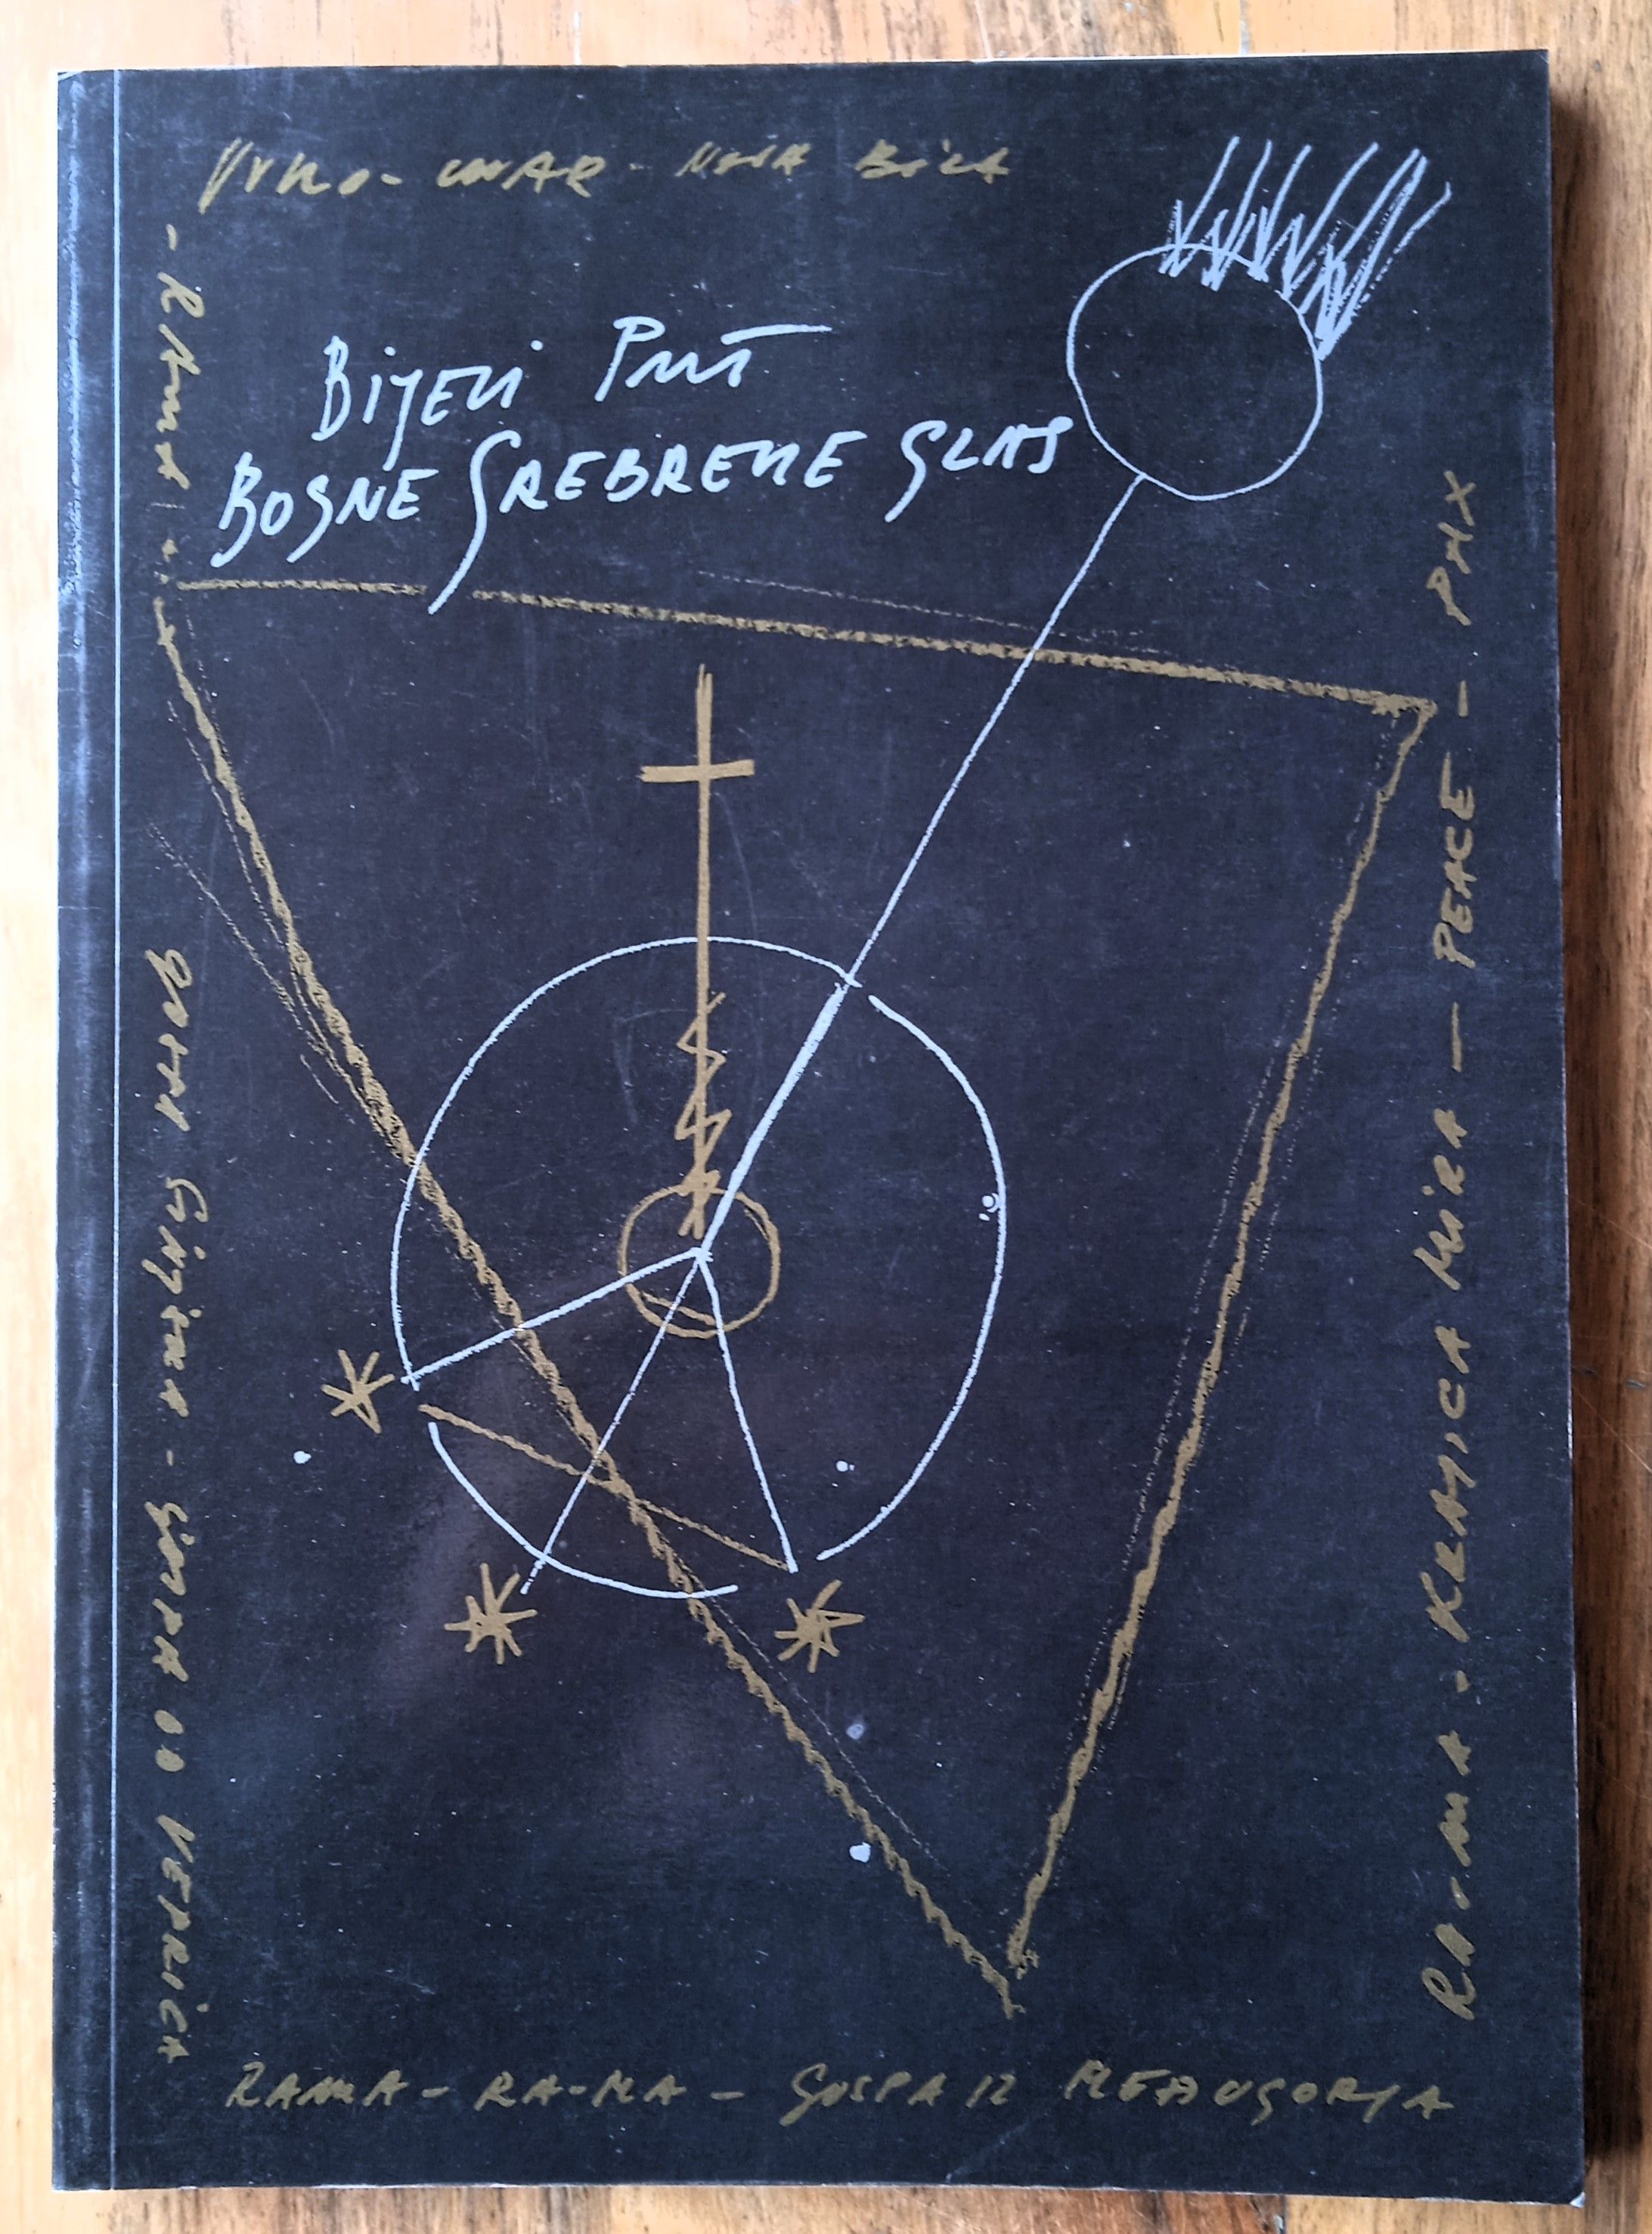 VUKO-WAR - NOVA BILA
BIJELI PUT
BOSNE SREBRENE GLAS
GOSPA SINJSKA - GOSPA OD VEPRICA
RA-MA - KRALJICA MIRA - PEACE - PAX
RAMA - RA-MA - GOSPA IZ MEĐUGORJA